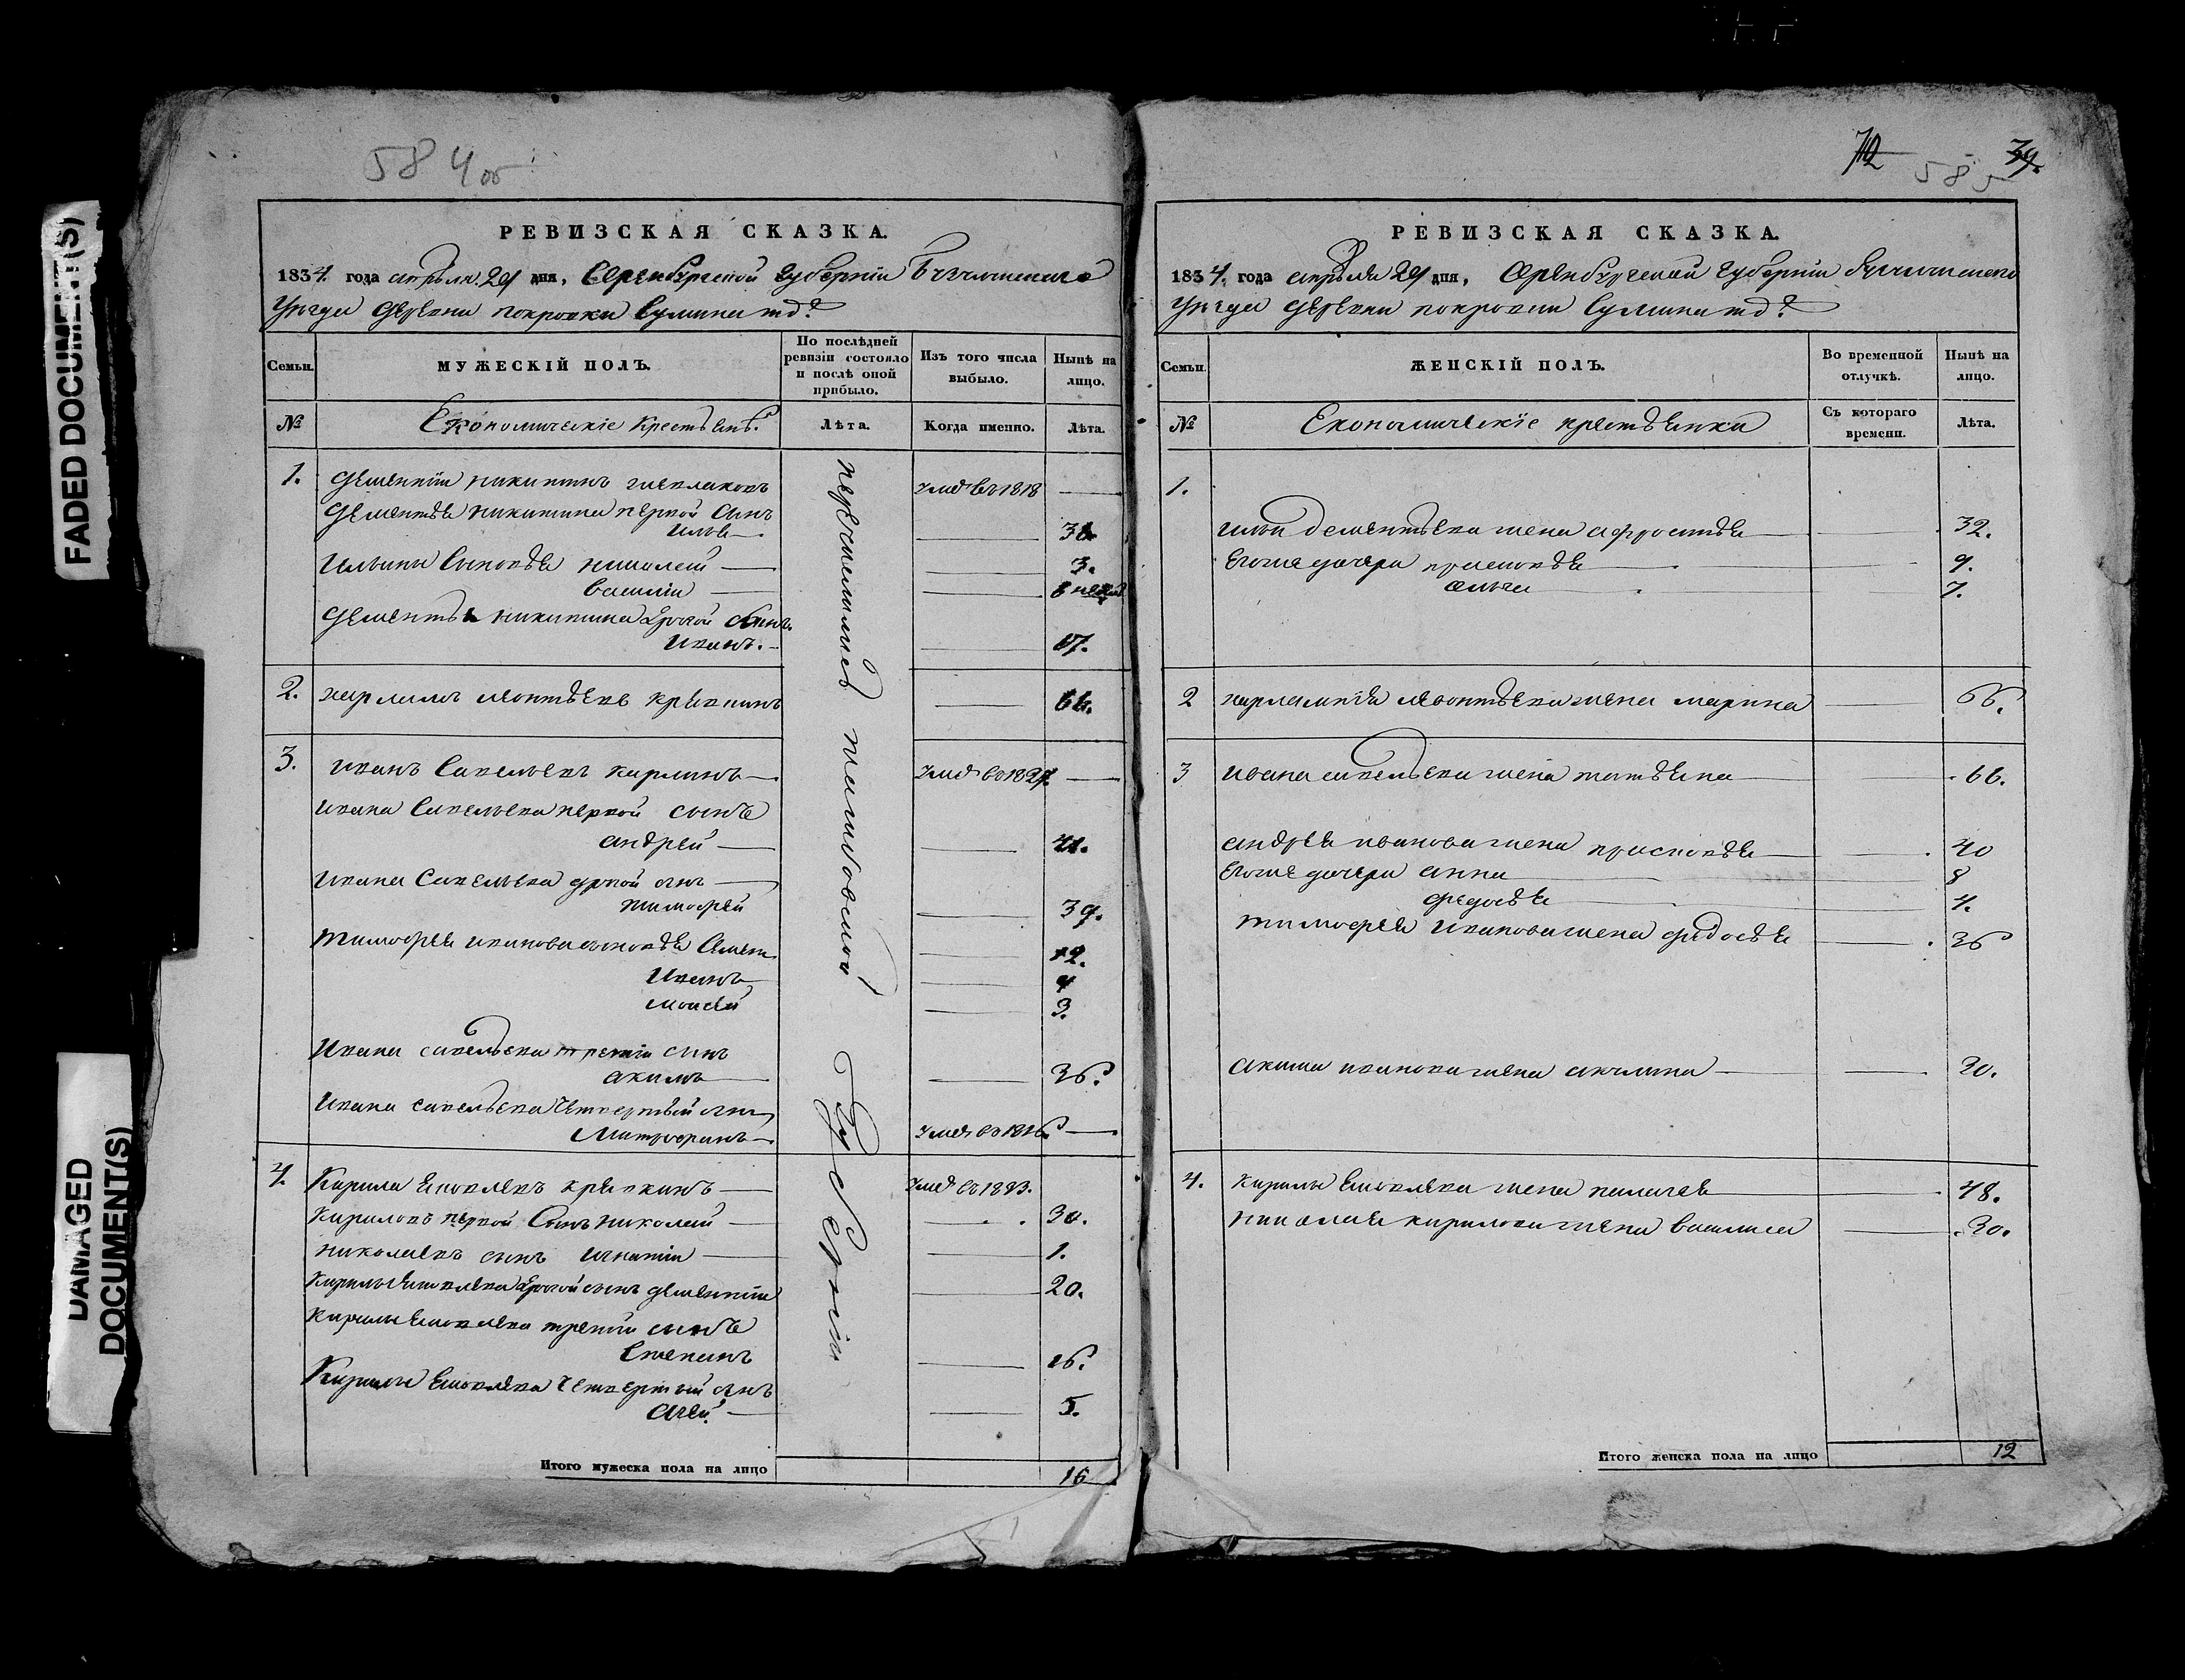 FADED DOCUMENT(S)
DAMAGED DOCUMENT(S)
584 об
РЕВИЗСКАЯ СКАЗКА.
1834. года апреля 24 дня, Оренбургской губернии Бугульминского
уезда деревни покровки Сумина тд?
Семьи.
МУЖЕСКІЙ ПОЛЪ.
По послѣдней ревизіи состояло и послѣ оной прибыло.
Изъ того числа выбыло.
Нынѣ на лицо.
№
Економическіе Крестьянъ.
Лѣта.
Когда именно.
Лѣта.
перечислились тамбовской губерніи
1. Дементіи никитинъ умеръ въ 1818
Дементѣя никитина первой сынъ
Илья 38
Ильины сыновѣя николай 3.
василіи
Дементѣя никитина другой сынъ
Иванъ. 17.
2. леонтѣевъ 66.
3. иванъ Савельевъ карпинъ умеръ въ 1827.
ивана Савельева первой сынъ
андрей 41.
ивана Савельева другой сынъ
тимофей 39.
тимофея иванова сыновѣя Семенъ 12.
Иванъ 4
моисей 3.
Ивана савельева третіи сынъ
акимъ 36.
Ивана савельева четвертый сынъ
Митрофанъ умеръ въ 1826.
4. Кирила яковлевъ умеръ въ 1833.
кириловъ первой Сынъ николай 30.
николаевъ сынъ игнатіи 1.
кирилы яковлева другой сынъ дементіи 20.
кирилы яковлева третіи сынъ
Степанъ 16.
Кирилы яковлева четвертый сынъ
5.
Итого мужеска пола на лицо 16
72 585 39.
РЕВИЗСКАЯ СКАЗКА.
1834. года апреля 24 дня, Оренбургской губерніи бугульминского
уезда деревни покровки Сумина тд?
Семьи.
ЖЕНСКІЙ ПОЛЪ.
Во временной отлучкѣ.
Нынѣ на лицо.
№
Економическіе крестьянки
Съ котораго времени.
Лѣта.
1.
ильи дементѣева жена афросинѣя 32.
Егоже дочери прасковѣя 9.
7.
2 леонтѣева жена марина 66.
3 ивана савельева жена татѣяна 66.
андрея иванова жена прасковѣя 40
Егоже дочери анна 8
федосѣя 4.
тимофея иванова жена федосѣя 36
акима иванова жена акулина 30.
4. кирилы яковлева жена пелагея 48.
николая кирилова жена василиса 30.
Итого женска пола на лицо 12